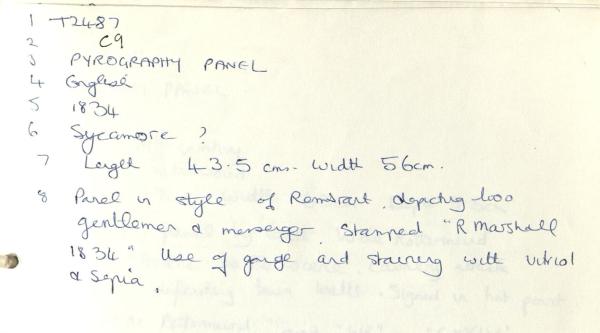 1 T2487
2 C9
3 PYROGRAPHY PANEL
4 English
5 1834
6 Sycamore ?
7 Length 43.5 cms. width 56cm.
8 Panel in style of Remdrant. depicting two
gentlemen & messenger. Stamped "R Marshall
1834" Use of gouge and staining with vitriol
& Sepia.